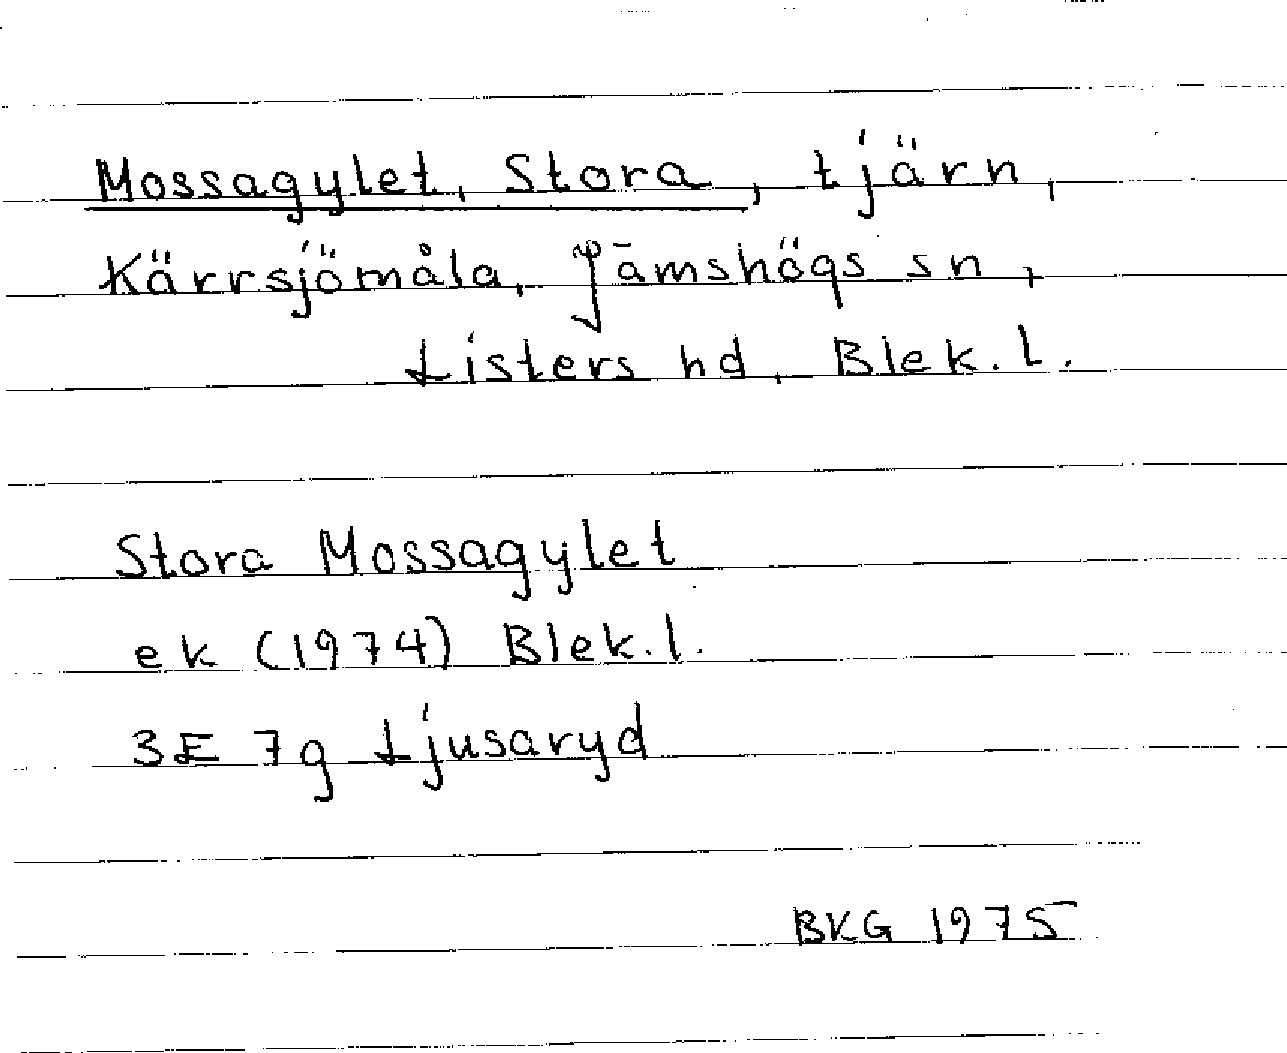 Mossagylet, Stora, tjärn,
Kärrsjömåla, Jämshögs sn,
Listers hd, Blek. l.
Stora Mossagylet
ek (1974) Blek. l.
3E 7g Ljusaryd
BKG 1975